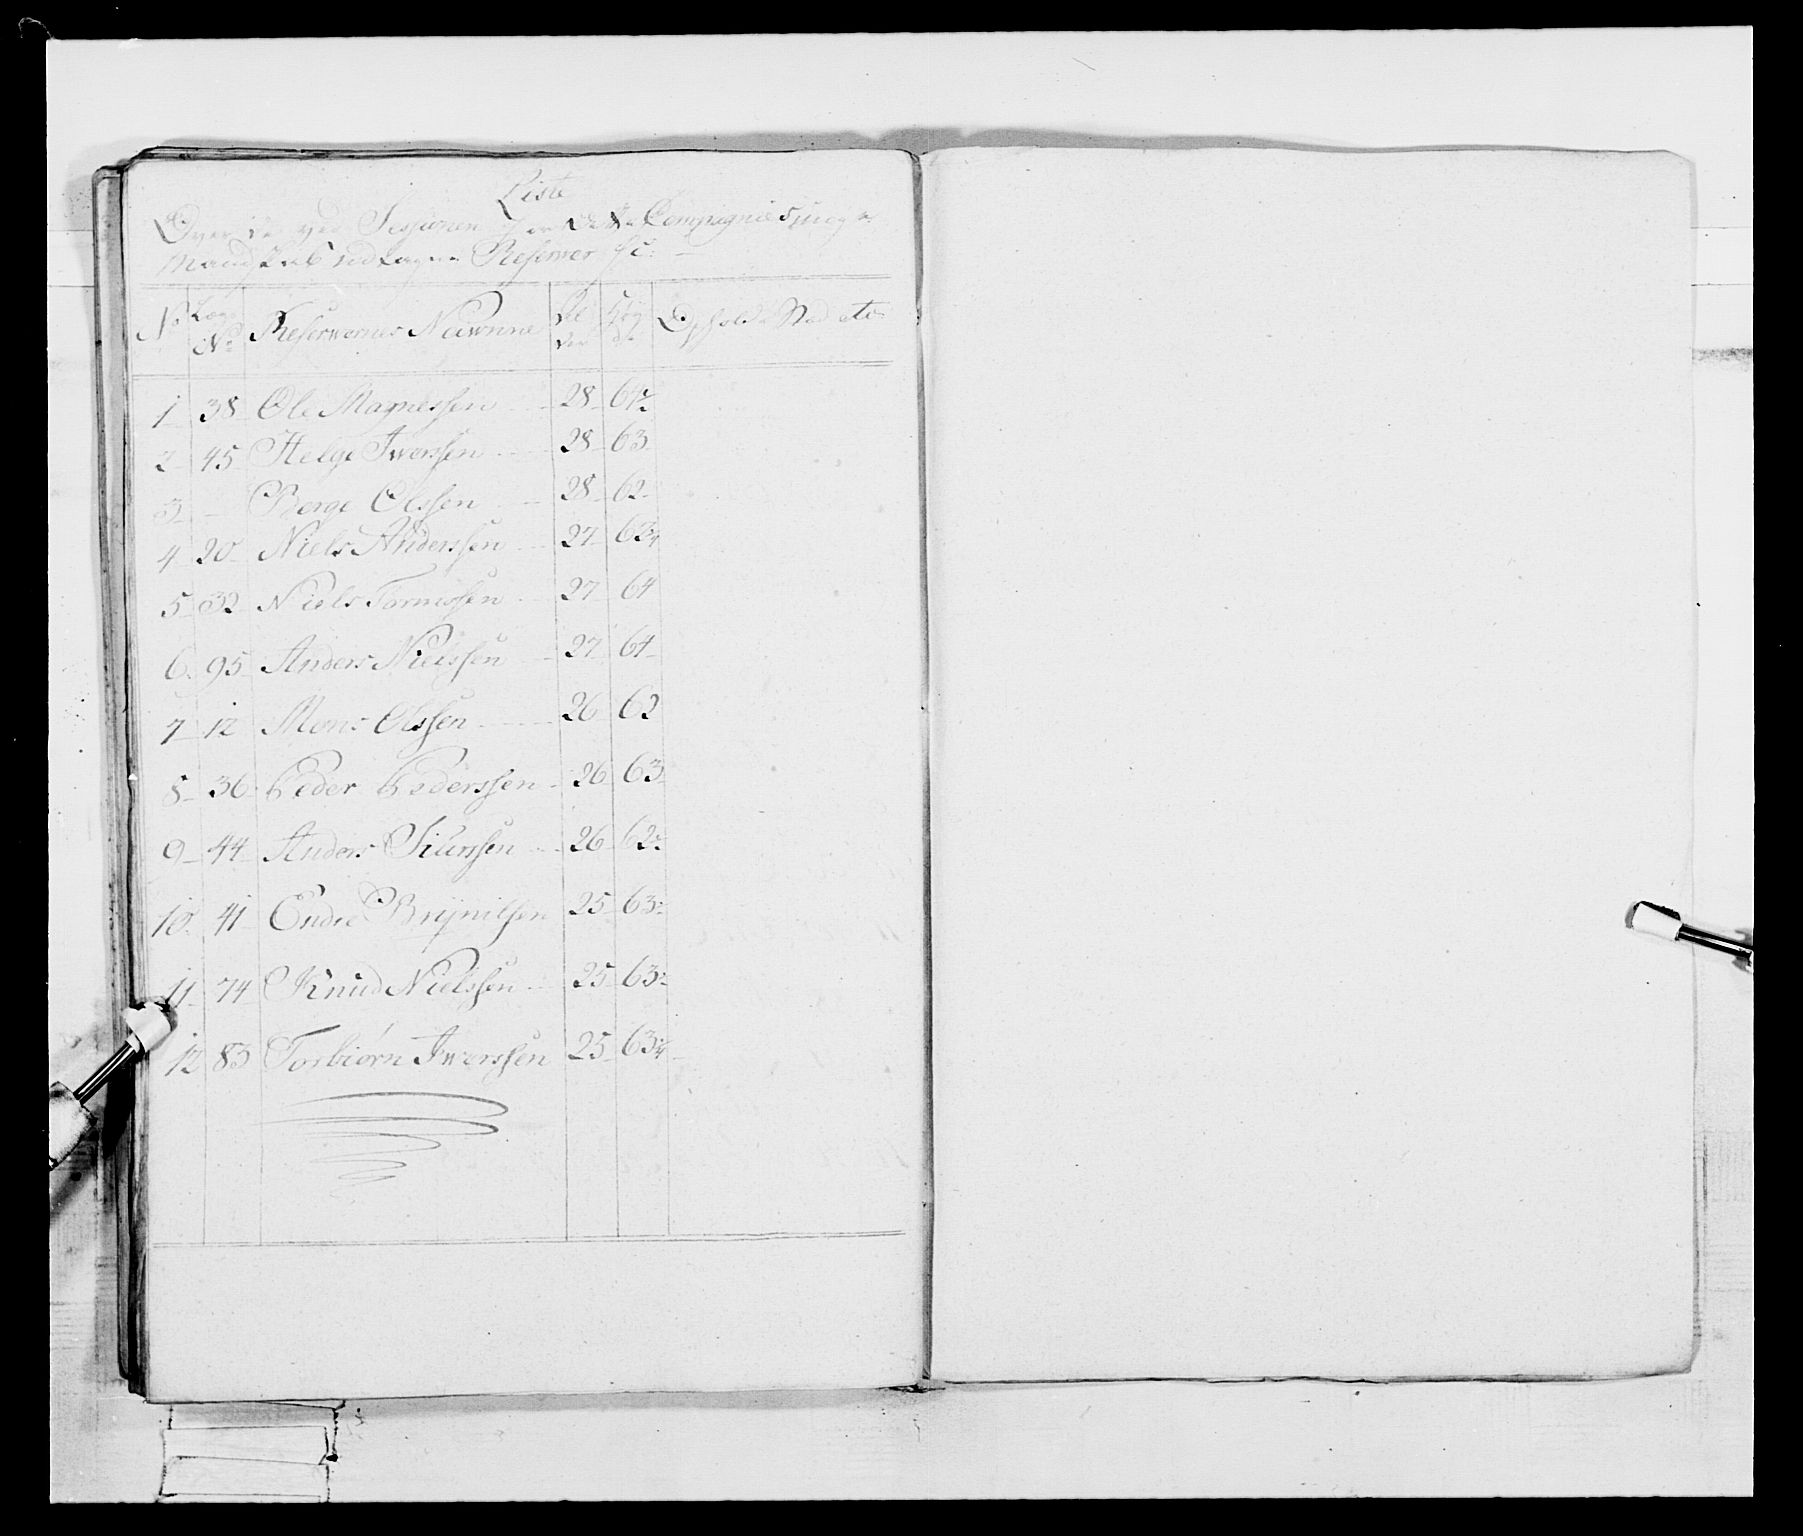 Liste
Over de ved Sessionen for dette Compagnie
Mandskab udtagne Reserver &c:
No Lægs No Reservernes Nawnne Al der Høy de Opholds Sted etc
1 38 Ole Magnessen 28 64½
2 45 Helge Iwerssen 28 63
3 — Børge Olssen 28 62
4 20 Niels Anderssen 27 63¼
5 32 Niels Tormossen 27 64
6 95 Anders Nielssen 27 64
7 12 Mons Olssen 26 62
8 36 Peder Pederssen 26 63
9 44 Anders Siurssen 26 62½
10 41 Endre Brynilsen 25 63½
11 74 Knud Nielssen 25 63½
12 83 Torbiørn Iwerssen 25 63¼